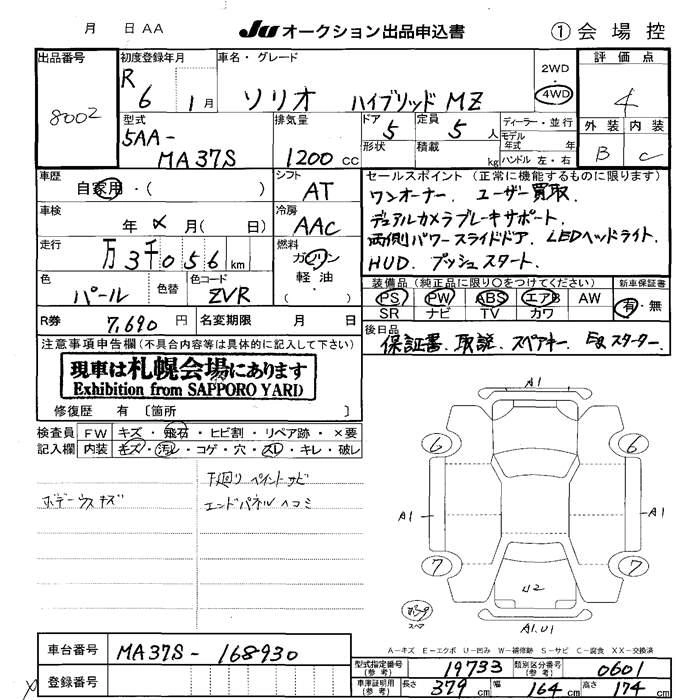 月 日 AA JU オークション出品申込書 ① 会場控
出品番号 8002
初度登録年月 R 6 1月
車名・グレード ソリオ ハイブリッド MZ
2WD 4WD
評価点 4
外装 内装
B C
型式 5AA- MA37S
排気量 1200 cc
ドア 5 形状
定員 5 人 積載 kg
ディーラー・並行
モデル年式 年
ハンドル 左・右
車歴 自家用・( )
シフト AT
セールスポイント (正常に機能するものに限ります)
ワンオーナー. ユーザー買取.
デュアルカメラブレーキサポート.
両側パワースライドドア. LEDヘッドライト.
HUD. プッシュスタート.
車検 年 月( 日)
冷房 AAC
走行 万 3千056 km
燃料 ガソリン 軽油 ( )
色 パール 色替 色コード ZVR
装備品 (純正品に限り〇をつけてください) 新車保証書
PS PW ABS エアB AW 有・無
SR ナビ TV カワ
R券 7,690 円 名変期限 月 日
後日品 保証書. 取説. スペアキー.
注意事項申告欄(不具合内容等は具体的に記入して下さい)
現車は札幌会場にあります
Exhibition from SAPPORO YARD
修復歴 有 〔箇所 〕
検査員記入欄
FW キズ・飛石・ヒビ割・リペア跡・×要
内装 キズ・汚レ・コゲ・穴・スレ・キレ・破レ
下回り ペイント サビ
ボデーウスキズ エンドパネル ヘコミ
A1
6 6
A1 A1
7 7
U2
A1.U1
A-キズ E-エクボ U-凹み W-補修跡 S-サビ C-腐食 XX-交換済
車台番号 MA37S-168930
登録番号
型式指定番号(参考) 19733 類別区分番号(参考) 0601
車庫証明用(参考) 長さ 379 cm 幅 164 cm 高さ 174 cm